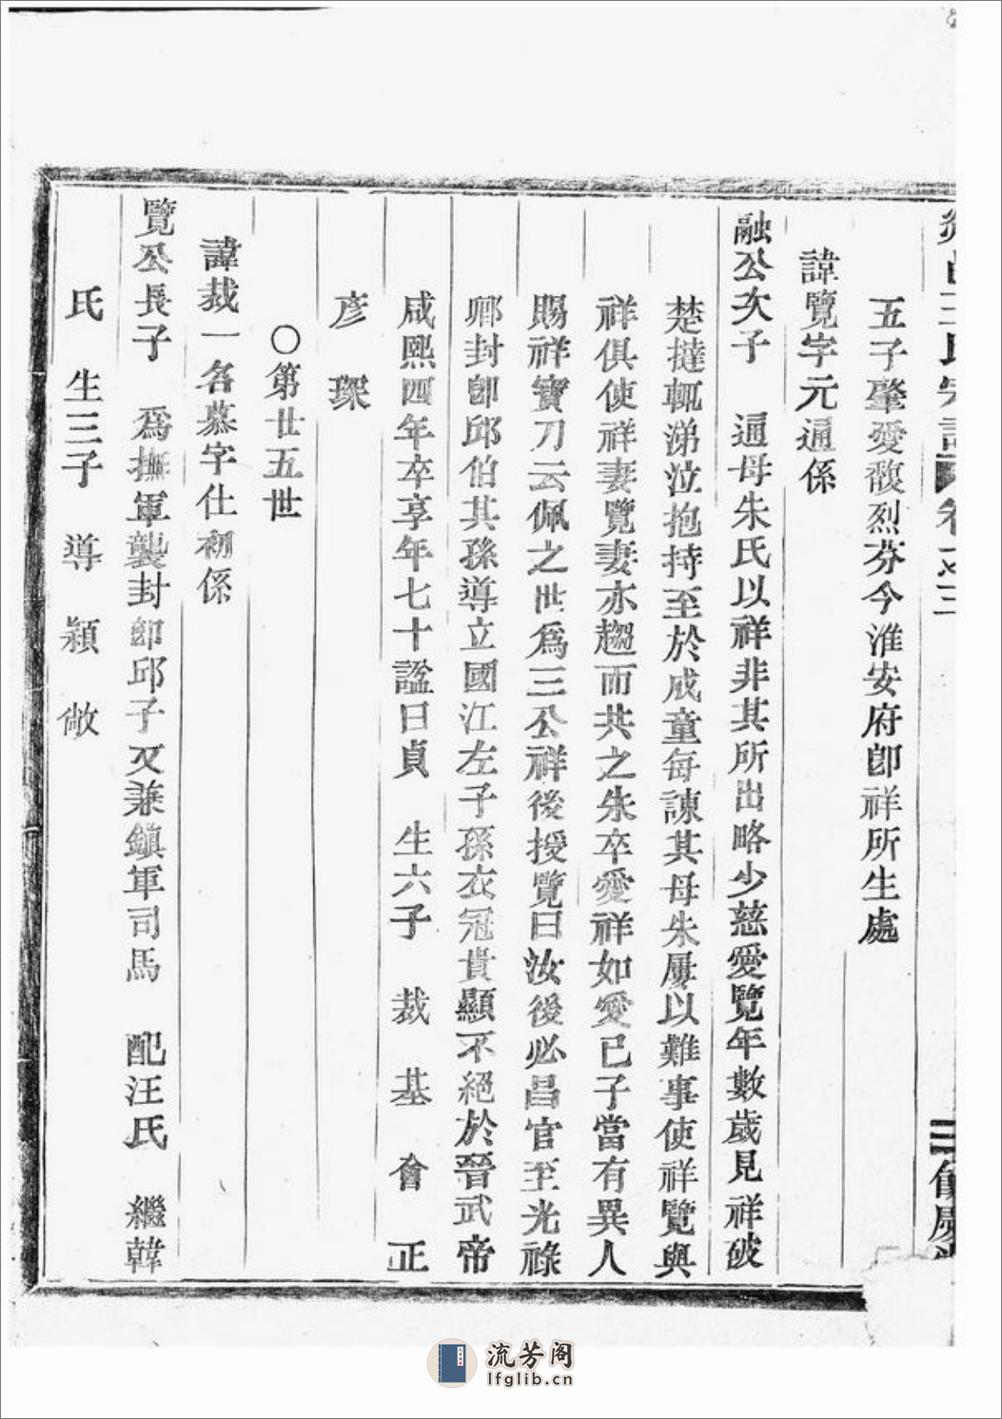 王氏宗譜 卷之三
五子肇愛馥烈芬今淮安府卽祥所生處
諱覽字元通係
融公次子 通母朱氏以祥非其所出略少慈愛覽年數歲見祥破
楚撻輒涕泣抱持至於成童每諫其母朱屢以難事使祥覽與
祥俱使祥妻覽妻亦趨而共之朱卒愛祥如愛已子當有異人
賜祥寶刀云佩之世爲三公祥後授覽曰汝後必昌官至光祿
卿封卽邱伯其孫導立國江左子孫衣冠貴顯不絕於晉武帝
咸熙四年卒享年七十諡曰貞 生六子 裁 基 會 正
彥 琛
〇第廿五世
諱裁一名慕字仕初係
覽公長子 爲撫軍襲封卽邱子又兼鎮軍司馬 配汪氏 繼韓
氏 生三子 導 穎 敞
流芳阁
lfglib.cn